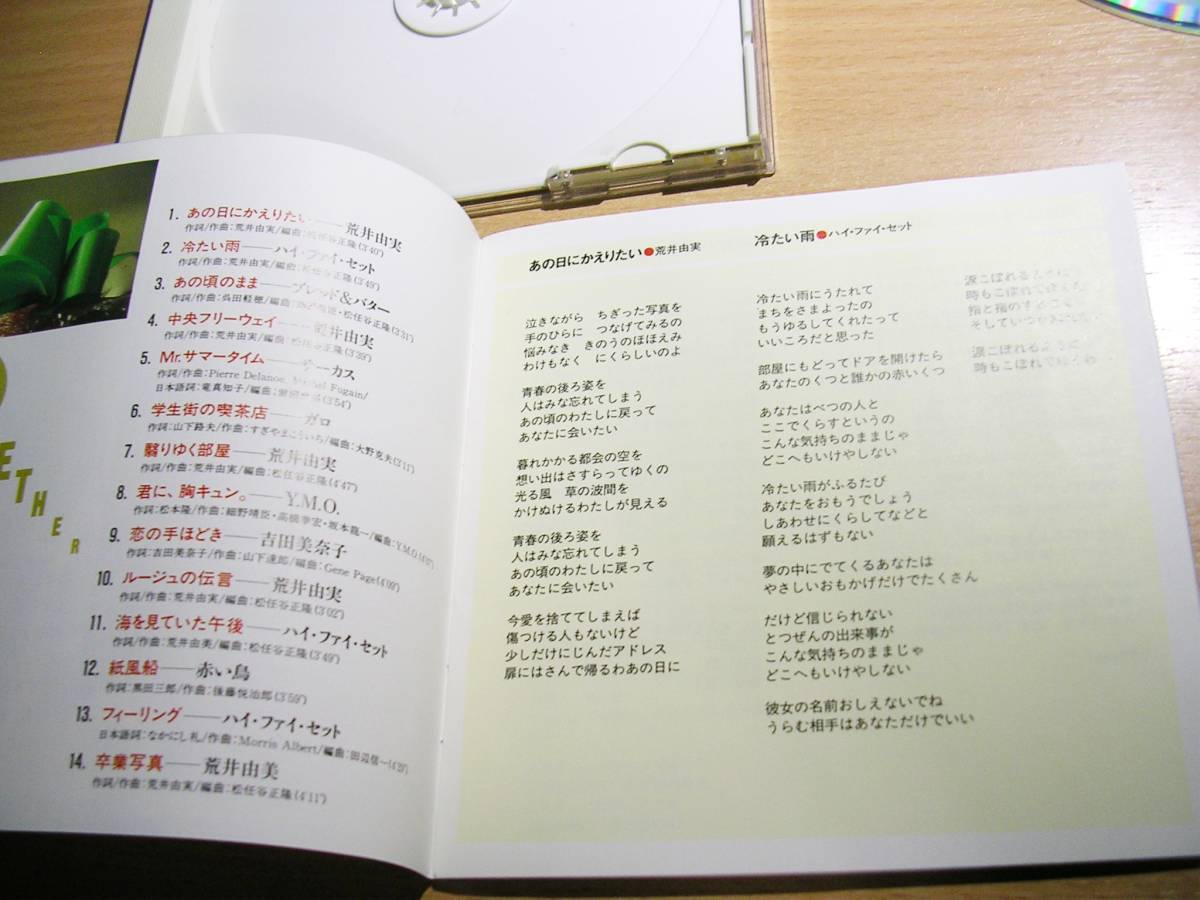 ETHER
1. あの日にかえりたい――荒井由実
作詞/作曲:荒井由実/編曲:松任谷正隆(3'40")
2. 冷たい雨――ハイ・ファイ・セット
作詞/作曲:荒井由実/編曲:松任谷正隆(3'49")
3. あの頃のまま――ブレッド&バター
作詞/作曲:呉田軽穂/編曲:松任谷正隆(3'31")
4. 中央フリーウェイ――荒井由実
作詞/作曲:荒井由実/編曲:松任谷正隆(3'39")
5. Mr.サマータイム――サーカス
作詞/作曲:Pierre Delanoe, Michel Fugain/
日本語詞:竜真知子/編曲:(3'54")
6. 学生街の喫茶店――ガロ
作詞:山下路夫/作曲:すぎやまこういち/編曲:大野克夫(3'11")
7. 翳りゆく部屋――荒井由実
作詞/作曲:荒井由実/編曲:松任谷正隆(4'47")
8. 君に、胸キュン。――Y.M.O.
作詞:松本隆/作曲:細野晴臣・高橋幸宏・坂本龍一/編曲:Y.M.O.(4'07")
9. 恋の手ほどき――吉田美奈子
作詞:吉田美奈子/作曲:山下達郎/編曲:Gene Page(4'09")
10. ルージュの伝言――荒井由実
作詞/作曲:荒井由実/編曲:松任谷正隆(3'02")
11. 海を見ていた午後――ハイ・ファイ・セット
作詞/作曲:荒井由美/編曲:松任谷正隆(3'49")
12. 紙風船――赤い鳥
作詞:黒田三郎/作曲:後藤悦治郎(3'59")
13. フィーリング――ハイ・ファイ・セット
日本語詞:なかにし礼/作曲:Morris Albert/編曲:田辺信一(4'29")
14. 卒業写真――荒井由美
作詞/作曲:荒井由実/編曲:松任谷正隆(4'11")
あの日にかえりたい●荒井由実
泣きながら ちぎった写真を
手のひらに つなげてみるの
悩みなき きのうのほほえみ
わけもなく にくらしいのよ
青春の後ろ姿を
人はみな忘れてしまう
あの頃のわたしに戻って
あなたに会いたい
暮れかかる都会の空を
想い出はさすらってゆくの
光る風 草の波間を
かけぬけるわたしが見える
青春の後ろ姿を
人はみな忘れてしまう
あの頃のわたしに戻って
あなたに会いたい
今愛を捨ててしまえば
傷つける人もないけど
少しだけにじんだアドレス
扉にはさんで帰るわあの日に
冷たい雨●ハイ・ファイ・セット
冷たい雨にうたれて
まちをさまよったの
もうゆるしてくれたって
いいころだと思った
部屋にもどってドアを開けたら
あなたのくつと誰かの赤いくつ
あなたはべつの人と
ここでくらすというの
こんな気持ちのままじゃ
どこへもいけやしない
冷たい雨がふるたび
あなたをおもうでしょう
しあわせにくらしてなどと
願えるはずもない
夢の中にでてくるあなたは
やさしいおもかげだけでたくさん
だけど信じられない
とつぜんの出来事が
こんな気持ちのままじゃ
どこへもいけやしない
彼女の名前おしえないでね
うらむ相手はあなただけでいい
涙こぼれるように
時もこぼれてゆくわ
指と指のすき
そしていつか
涙こぼれるように
時もこぼれてゆくわ